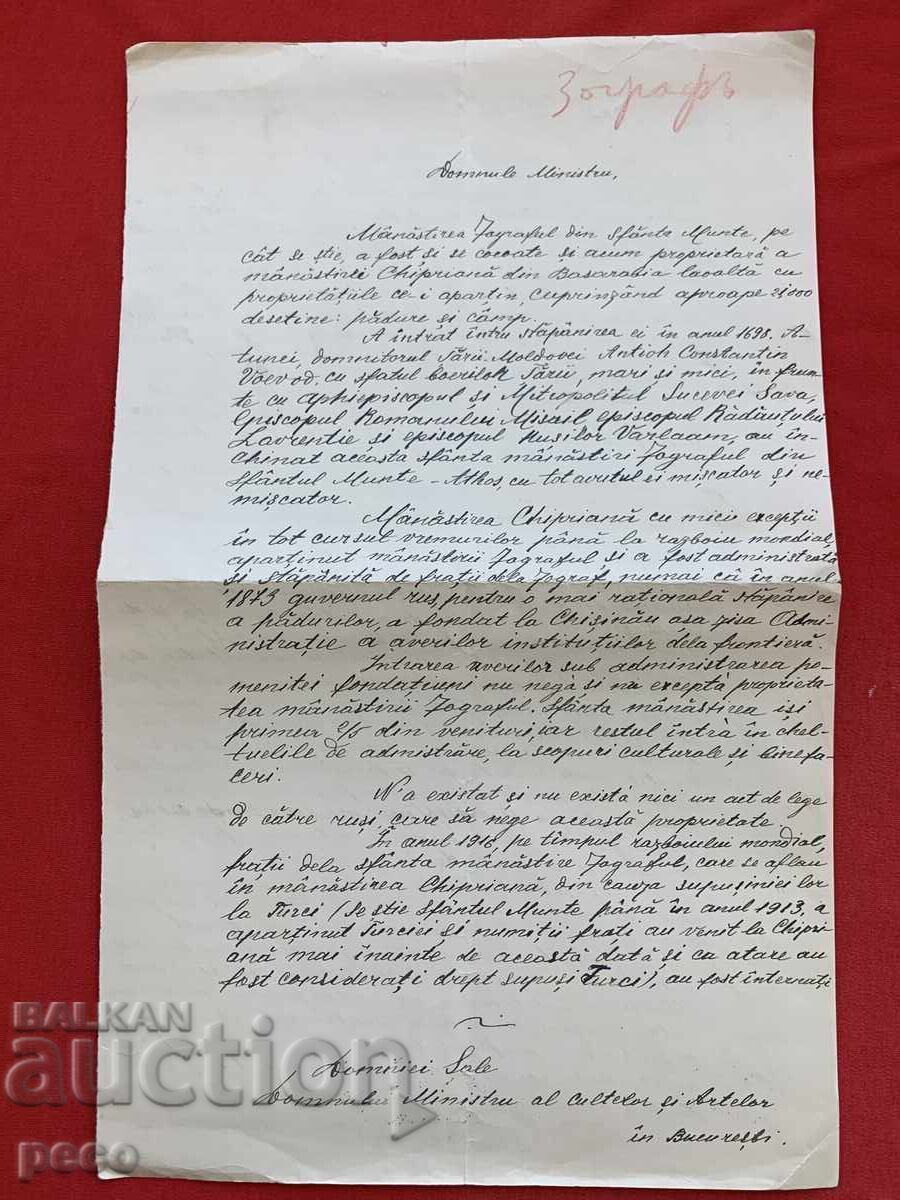 Зографъ
Domnule Ministru,
Mânăstirea Zograful din Sfânta Munte, pe
cât se știe, a fost și se socoate si acum proprietară a
mânăstirei Chipriană din Basarabia laolaltă cu
proprietățiile ce-i apartin, cuprinzând aproape 21000
desetine: pădure și câmp.
A intrat întru stăpânirea ei în anul 1698. A-
tunci, domnitorul Tării Moldovei Antioh Constantin
Voevod, cu sfatul boerilor Tării, mari si mici, în frun-
te cu aphiepiscopul și Mitropolitul Sucevei Sava,
Episcopul Romanului Misail, episcopul Rădăuțului
Lavrentie si episcopul Husilor Varlaam, au în-
chinat aceasta sfânta mânăstiri Zograful din
Sfântul Munte - Athos, cu tot avutul ei miscator și ne-
mișcator.
Mânăstirea Chipriană cu mici exceptii
in tot cursul vremurilor până la razboiu mondial,
aparținut mânăstirii Zograful și a fost administrată
și stăpânită de frații dela Zograf, numai că în anul
1873 guvernul rus, pentru o mai ratională stăpânire
a pădurilor, a fondat la Chișinău asa zisa Admi-
nistrație a averilor instituțiilor dela frontieră.
Intrarea averilor sub administrarea po-
menitei fondațiuni nu negă și nu exceptă proprieta-
tea mânăstirii Zograful. Sfânta mânăstirea iși
primeur 2/5 din venituri, iar restul intră în chel-
tuelile de admistrăre, la scopuri culturale și binefa-
ceri.
N'a existat și nu există nici un act de lege
de către ruși, care să nege această proprietate.
În anul 1916, pe timpul razboiului mondial,
frații dela sfânta mânăstire Zograful, care se aflau
în mânăstirea Chipriană, din cauza supușiniei lor
la Turci (se știe Sfântul Munte până în anul 1913, a
aparținut Turciei și numiții frați au venit la Chipri-
ană mai înainte de această dată și ca atare au
fost considerați drept supuși Turci), au fost internați
Domniei Sale
Domnului Ministru al cultelor și Artelor
în București.
BALKAN
auction
peco